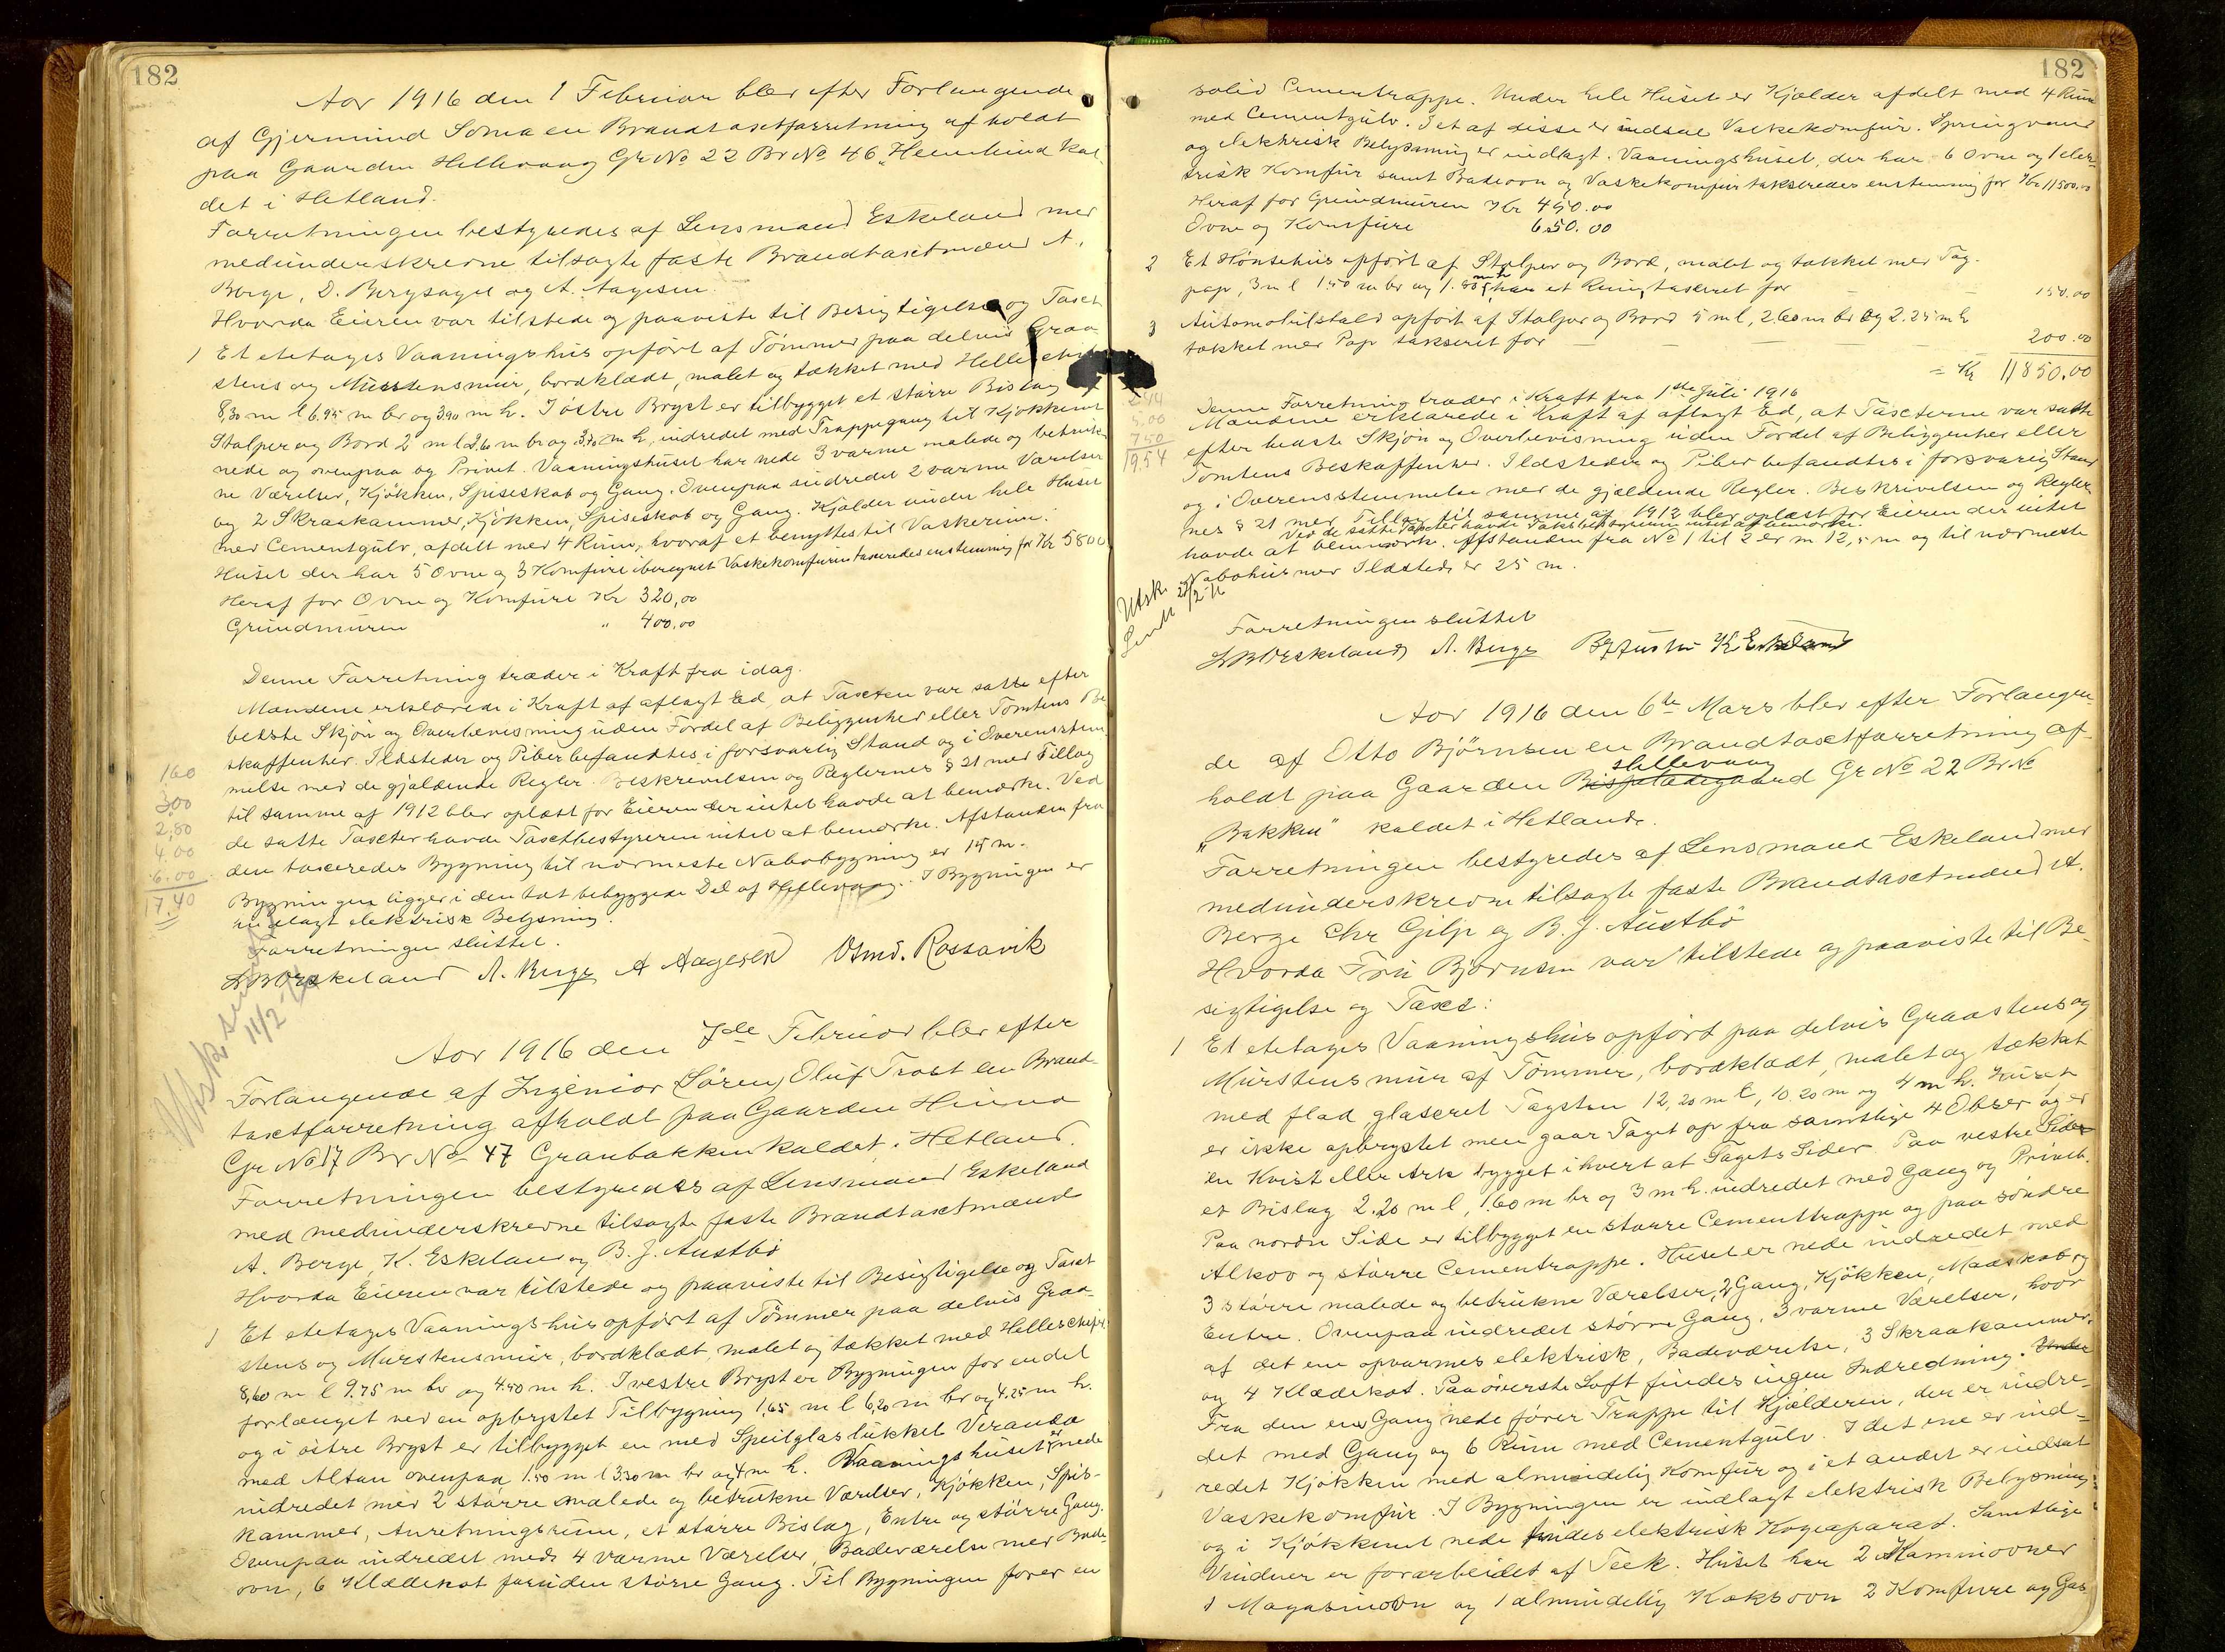 182
Aar 1916 den 1 Februar blev efter Forlangende
af Gjermund Soma en Brandtaxtforretning afholdt
paa Gaarden Hillevaag Gr No 22 Br No 46 kal-
det i Hetland.
Forretningen bestyredes af Lensmand Eskeland med
medunderskrevne tilsagte faste Brandtaxtmænd A.
Berge, D. Bergsagel og A. Aagesen.
Hvorda Eieren var tilstede og paaviste til Besigtigelse og Taxt
1 Et etetages Vaaningshus opført af Tømmer paa delvis Graa-
stens og Murstensmur, bordklædt, malet og tækket med Helleskifer
8,30 m l 6.95 m br og 3.90 m h. I østre Bryst er tilbygget et større Bislag af
Stolper og Bord 2 m l 2.60 m br og 3.70 m h, indredet med Trappegang til Kjøkkenet
nede og ovenpaa og Privet. Vaaningshuset har nede 3 varme malede og betrukk-
ne Værelser, Kjøkken, Spiseskab og Gang. Ovenpaa indredet 2 varme Værelser
og 2 Skraakammer, Kjøkken, Spiseskab og Gang. Kjælder under hele Huset
med Cementgulv, afdelt med 4 Rum, hvoraf et benyttes til Vaskerum.
Huset der har 5 Ovne og 3 Komfure iberegnet Vaskekomfuren taxeredes enstemmig for Kr 5800
Heraf for Ovne og Komfure Kr 320,00
Grundmuren " 400,00
Denne Forretning træder i Kraft fra idag.
Mændene erklærede i Kraft af aflagt Ed, at Taxten var satte efter
bedste Skjøn og Overbevisning uden Fordel af Beliggenhed eller Tomtens Be-
skaffenhed. Ildsteder og Piber befandtes i forsvarlig Stand og i Overensstem-
melse med de gjældende Regler. Beskrivelsen og Reglernes § 21 med Tillæg
til samme af 1912 blev oplæst for Eieren der intet havde at bemærke. Ved
de satte Taxter havde Taxtbestyreren intet at bemærke. Afstanden fra
den taxeredes Bygning til nærmeste Nabobygning er 15 m.
Bygningen ligger i den tæt bebyggede Del af Hillevaag. I Bygningen er
indlagt elektrisk Belysning.
Forretningen sluttet.
160
300
2,80
4.00
6.00
17,40
Eskeland A. Berge A Aagesen Osmd. Rossavik
Utsk. sendt 11/2 16
Aar 1916 den 7de Februar blev efter
Forlangende af Ingeniør Søren Oluf Trost en Brand-
taxtforretning afholdt paa Gaarden Hinna
Gr No 17 Br No 47 Granbakken kaldet i Hetland.
Forretningen bestyredes af Lensmand Eskeland
med medunderskrevne tilsagte faste Brandtaxtmænd
A. Berge, K. Eskeland og B. J. Austbø
Hvorda Eieren var tilstede og paaviste til Besigtigelse og Taxt
1 Et etetages Vaaningshus opført af Tømmer paa delvis Graa-
stens og Murstensmur, bordklædt, malet og tækket med Helleskifer
8,60 m l 9.75 m br og 4.50 m h. I vestre Bryst er Bygningen for endel
forlænget ved en opbrystet Tilbygning 1,65 m l 6,20 m br og 4.25 m h.
og i østre Bryst er tilbygget en med Speilglas lukket Veranda
med Altan ovenpaa 1.50 m l 3.30 m br og 4 m h. Vaaningshuset er nede
indredet med 2 større malede og betrukne Værelser, Kjøkken, Spis-
kammer, Anretningsrum, et større Bislag, Entre og større Gang.
Ovenpaa indredet med 4 varme Værelser, Badeværelse med Bade-
ovn, 6 Klædekot foruden større Gang. Til Bygningen fører en
182
solid Cementtrappe. Under hele Huset er Kjælder afdelt med 4 Rum
med Cementgulv. I et af disse er indsat Vaskekomfur. Springvand
og elektrisk Belysning er indlagt. Vaaningshuset, der har 6 Ovne og 1 elek-
trisk Komfur samt Badeovn og Vaskekomfur taksteredes enstemmig for Kr 11500,00
Heraf for Grundmuren Kr 450.00
Ovne og Komfure 650.00
2 Et Hønsehus opført af Stolper og Bord, malet og tækket med Tag-
pap, 3 m l 1.50 m br og 1.80 m h har et Rum, taxeret for 150.00
3 Automobilstald opført af Stolper og Bord 5 m l, 2.60 m br og 2.25 m h
tækket med Pap takseret for 200.00
= Kr 11850.00
Denne Forretning træder i Kraft fra 1ste Juli 1916
Mændene erklærede i Kraft af aflagt Ed, at Taxterne var satte
efter bedste Skjøn og Overbevisning uden Fordel af Beliggenhed eller
Tomtens Beskaffenhed. Ildsteder og Piber befandtes i forsvarlig Stand
og i Overensstemmelse med de gjældende Regler. Beskrivelsen og Regler-
nes § 21 med Tillæg til samme af 1912 blev oplæst for Eieren der intet
Ved de satte Taxter havde Takstbestyreren intet at bemærke.
havde at bemærke. Afstanden fra No 1 til 2 er m 12,5 m og til nærmeste
Nabohus med Ildsted er 25 m.
5.00
7.50
19.54
Utsk. Sendt
Forretningen sluttet
Eskeland A. Berge B J Austbø K Eskeland
Aar 1916 den 6te Mars blev efter Forlangen-
de af Otto Bjørnsen en Brandtaxtforretning af-
Hillevaag
holdt paa Gaarden Bispeladegaard Gr No 22 Br No
"Bakken" kaldet i Hetland.
Forretningen bestyredes af Lensmand Eskeland med
medunderskrevne tilsagte faste Brandtaxtmænd A.
Berge Chr Gilje og B. J. Austbø
Hvorda Fru Bjørnsen var tilstede og paaviste til Be-
sigtigelse og Taxt:
1 Et etetages Vaaningshus opført paa delvis Graastens og
Murstensmur af Tømmer, bordklædt, malet og tækket
med flad, glaseret Tagsten 12,20 m l, 10.20 m og 4 m h. Huset
er ikke opbrystet men gaar Taget op fra samtlige 4 Sider og er
en Kvist eller Ark bygget i hvert af Tagets Sider. Paa vestre Side
et Bislag 2.20 m l, 1.60 m br og 3 m h. indredet med Gang og Privet.
Paa nordre Side er tilbygget en større Cementtrappe og paa søndre
Alkov og større Cementtrappe. Huset er nede indredet med
3 større malede og betrukne Værelser, 2 Gang, Kjøkken, Madskab og
Entre. Ovenpaa indredet større Gang, 3 varme Værelser, hvor
af det ene opvarmes elektrisk, Badeværelse, 3 Skraakammer,
og 4 Klædekot. Paa øverste Loft findes ingen Indredning. Under
Fra den ene Gang nede fører Trappe til Kjælderen, der er indre-
det med Gang og 6 Rum med Cementgulv. I det ene er ind-
redet Kjøkken med almindelig Komfur og i et andet er indsat
Vaskekomfur. I Bygningen er indlagt elektrisk Belysning
og i Kjøkkenet nede findes elektrisk Kogeaparat. Samtlige
Vinduer er forarbeidet af Teek. Huset har 2 Kaminovner
1 Magasinovn og 1 almindelig Koksovn 2 Komfure og Gas